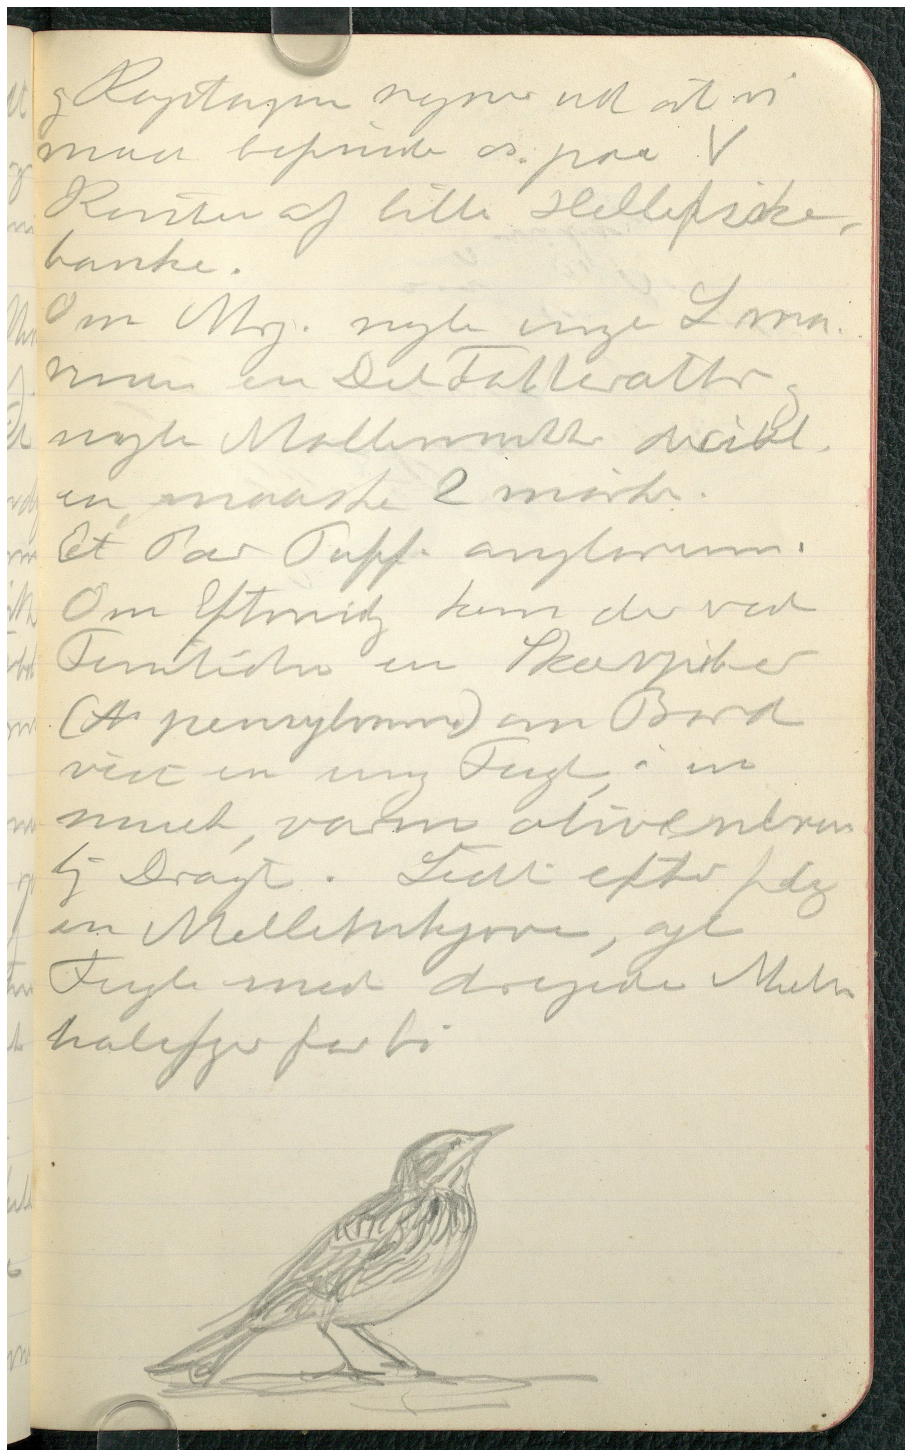 og Kaptajnen regner ud at vi
maa befinde os paa V
Kanten af lille Hellefiske-
banke.
Om Mrg. nogle unge L. ma-
rinus en Del Tatteratter og
nogle Mallemukker deribl.
en, maaske 2 mørke.
Et Par Puff. anglorum.
Om Eftmidg kom der ved
Femtiden en Skærpiber
(A. pensylvanic) om Bord
vist en ung Fugl, i en
smuk, varm olivenbrun
lig Dragt. Lidt efter fløj
en Mellemkjove, ogl
Fugle med drejede Midt
halefjer forbi